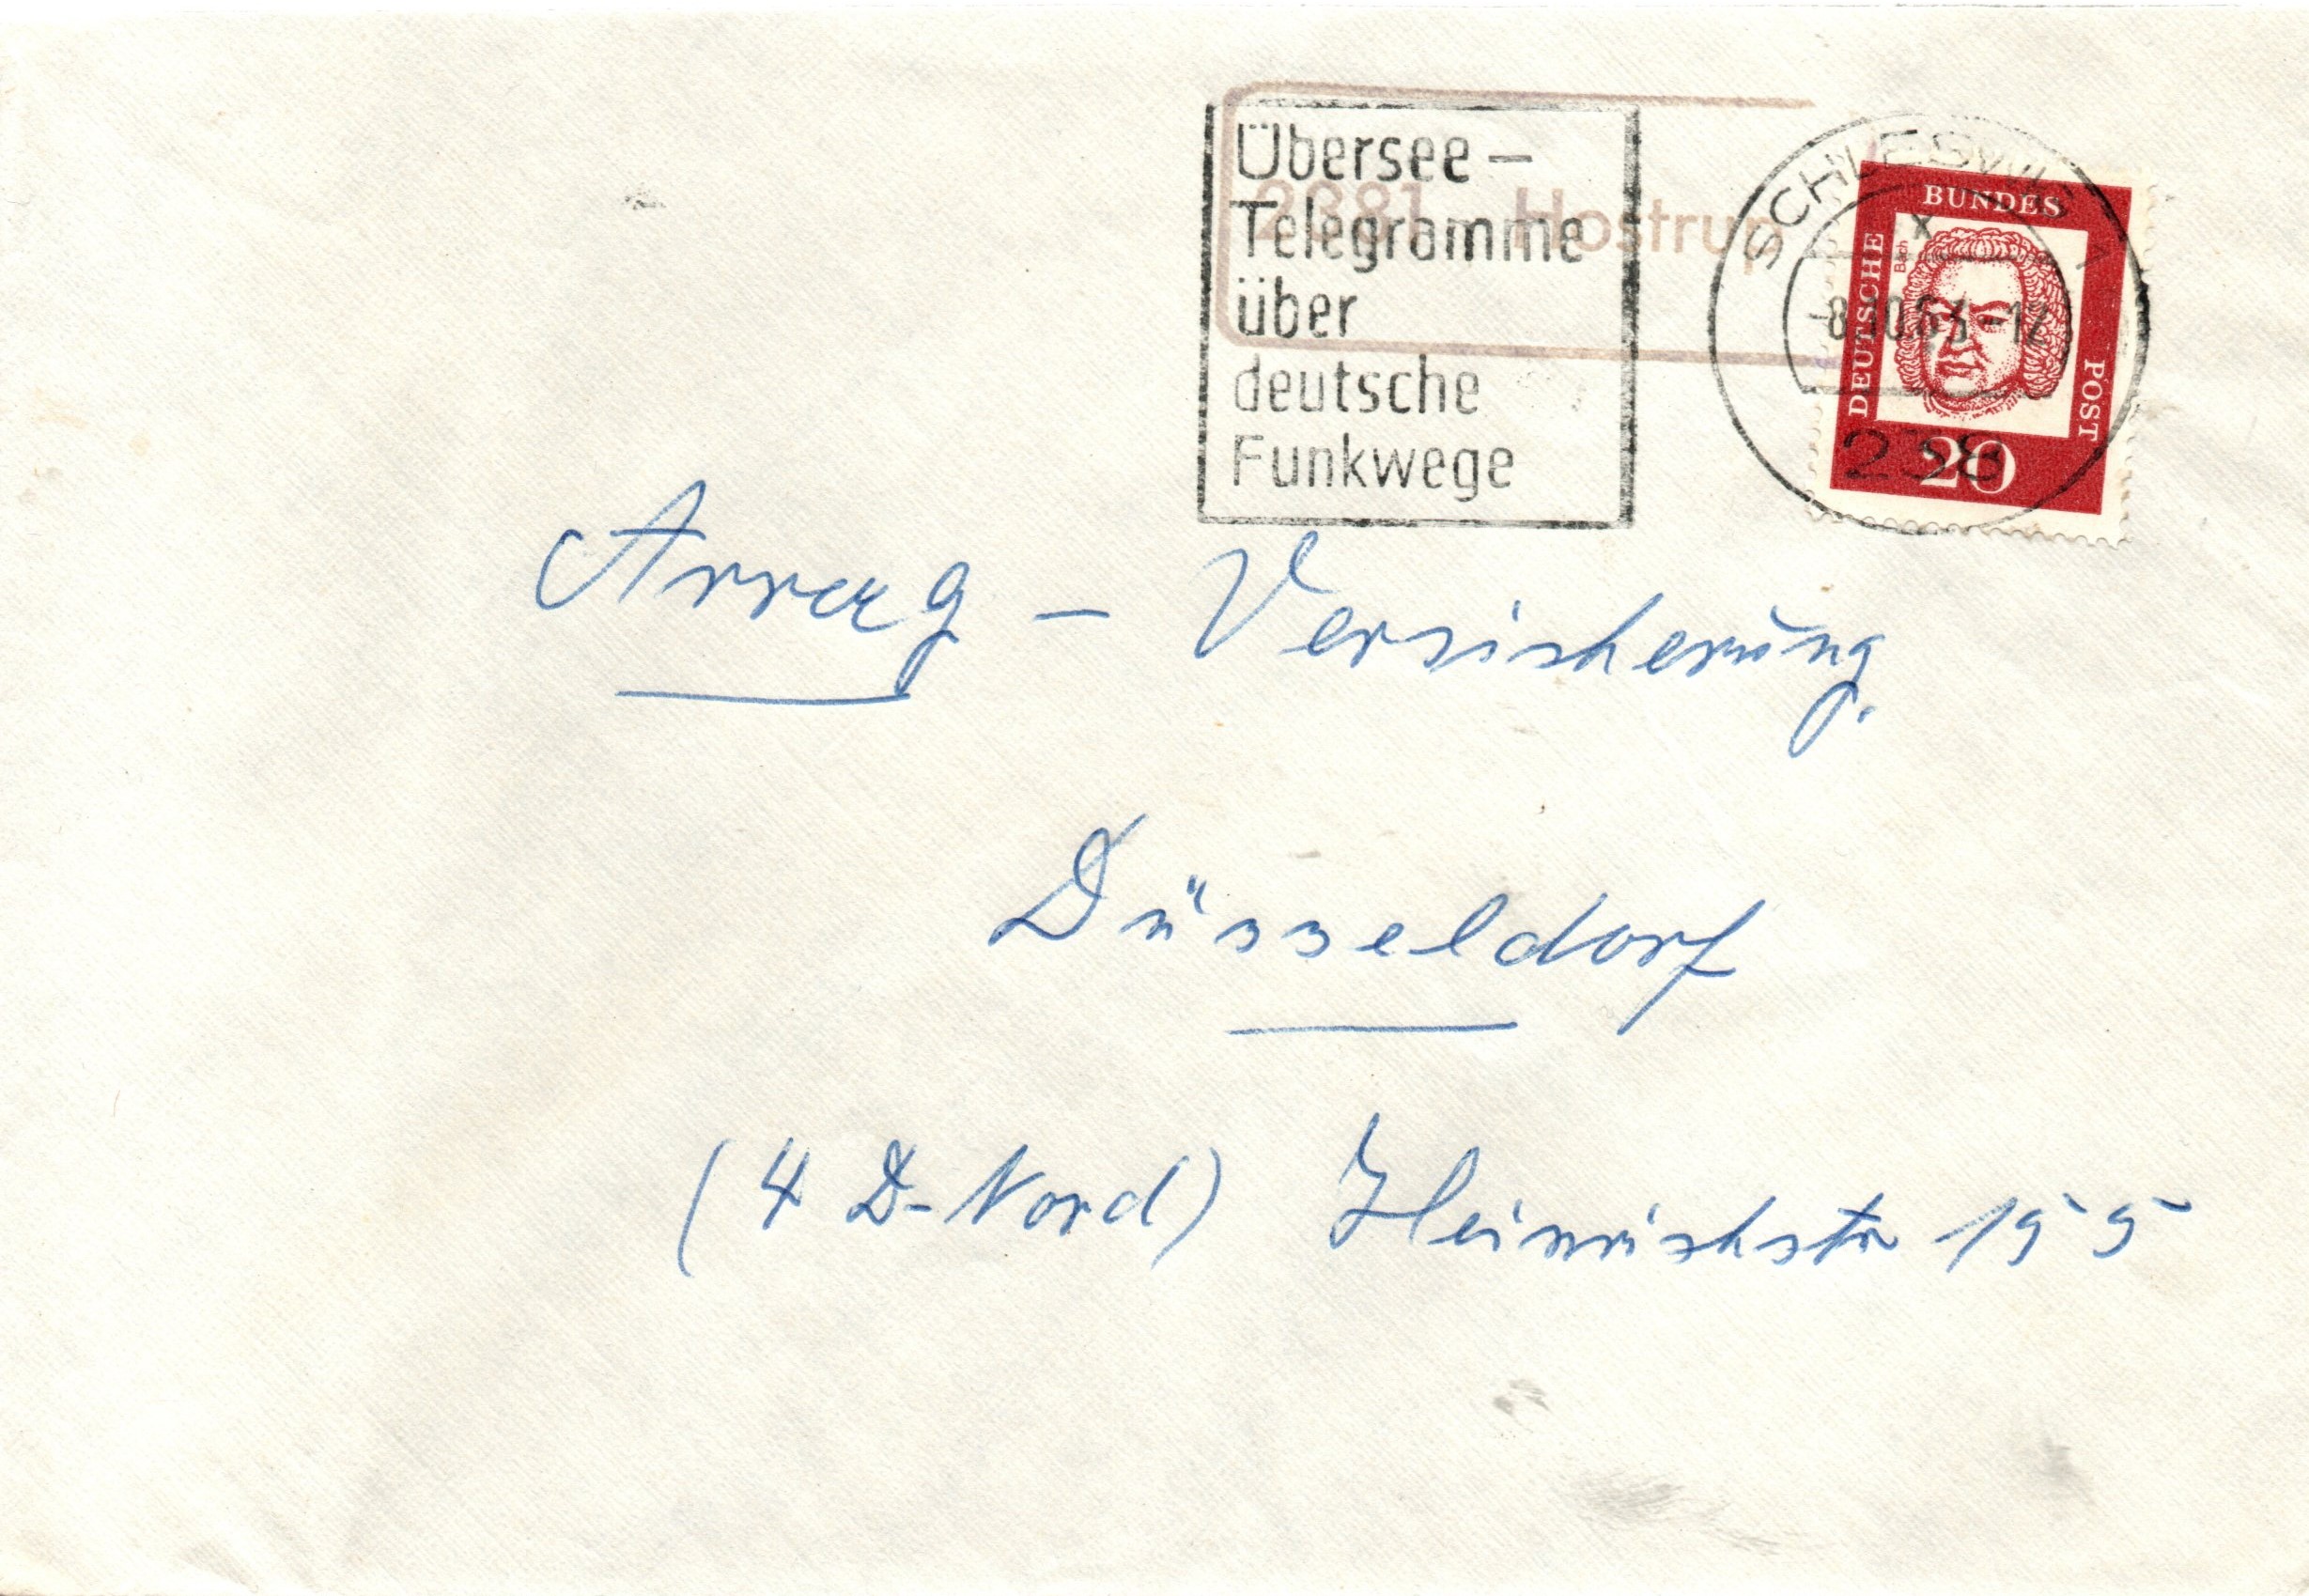 Übersee –
Telegramme
über
deutsche
Funkwege
2381 Hostrup
SCHLESWIG 1
-8.10.63.-12
238
DEUTSCHE
BUNDES
POST
Bach
20
Arrag – Versicherung.
Düsseldorf
(4 D-Nord) Heinrichstr 155